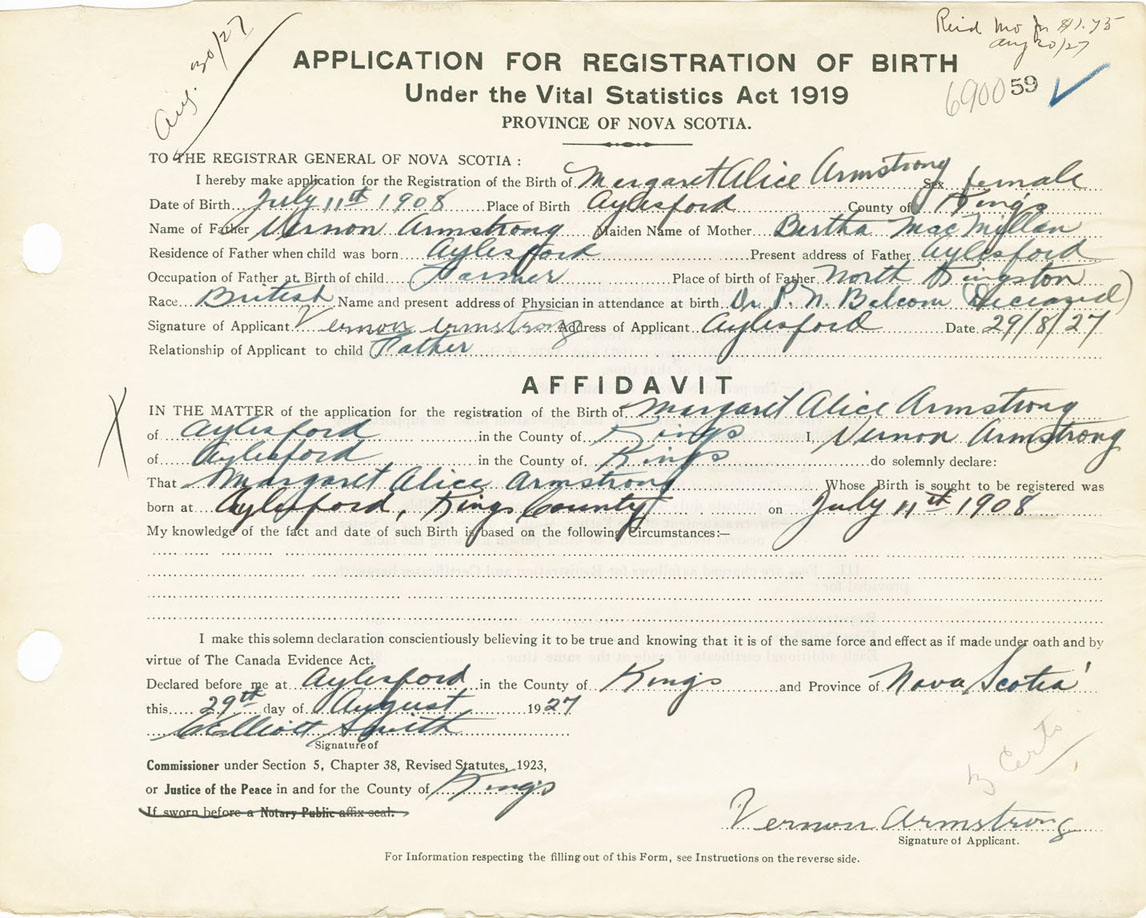 Aug. 30/27
Recd Mo for $1.75
Aug 30/27
APPLICATION FOR REGISTRATION OF BIRTH
Under the Vital Statistics Act 1919
690059
PROVINCE OF NOVA SCOTIA.
TO THE REGISTRAR GENERAL OF NOVA SCOTIA:
I hereby make application for the Registration of the Birth of Margaret Alice Armstrong Sex female
Date of Birth July 11th 1908 Place of Birth Aylesford County of Kings
Name of Father Vernon Armstrong Maiden Name of Mother Bertha MacMillan
Residence of Father when child was born Aylesford Present address of Father Aylesford
Occupation of Father at Birth of child Farmer Place of birth of Father North Kingston
Race British Name and present address of Physician in attendance at birth Dr. P. N. Balcom (Deceased)
Signature of Applicant Vernon Armstrong Address of Applicant Aylesford Date 29/8/27
Relationship of Applicant to child Father
AFFIDAVIT
IN THE MATTER of the application for the registration of the Birth of Margaret Alice Armstrong
of Aylesford in the County of Kings I, Vernon Armstrong
of Aylesford in the County of Kings do solemnly declare:
That Margaret Alice Armstrong Whose Birth is sought to be registered was
born at Aylesford, Kings County on July 11th 1908
My knowledge of the fact and date of such Birth is based on the following Circumstances:—
I make this solemn declaration conscientiously believing it to be true and knowing that it is of the same force and effect as if made under oath and by
virtue of The Canada Evidence Act.
Declared before me at Aylesford in the County of Kings and Province of Nova Scotia
this 29th day of August 1927
Elliott Smith
Signature of
Commissioner under Section 5, Chapter 38, Revised Statutes, 1923,
or Justice of the Peace in and for the County of Kings
If sworn before a Notary Public affix seal.
Certs
Vernon Armstrong
Signature of Applicant.
For Information respecting the filling out of this Form, see Instructions on the reverse side.